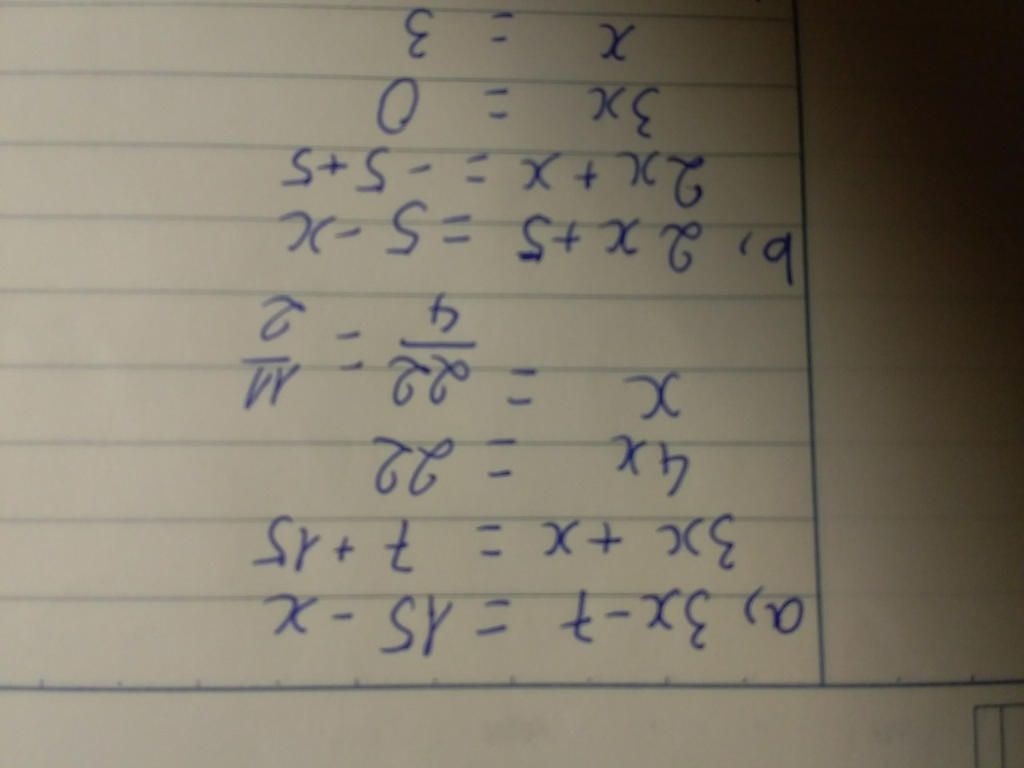 a, 3x - 7 = 15 - x
3x + x = 7 + 15
4x = 22
x = 22/4 = 11/2
b, 2x + 5 = 5 - x
2x + x = - 5 + 5
3x = 0
x = 3